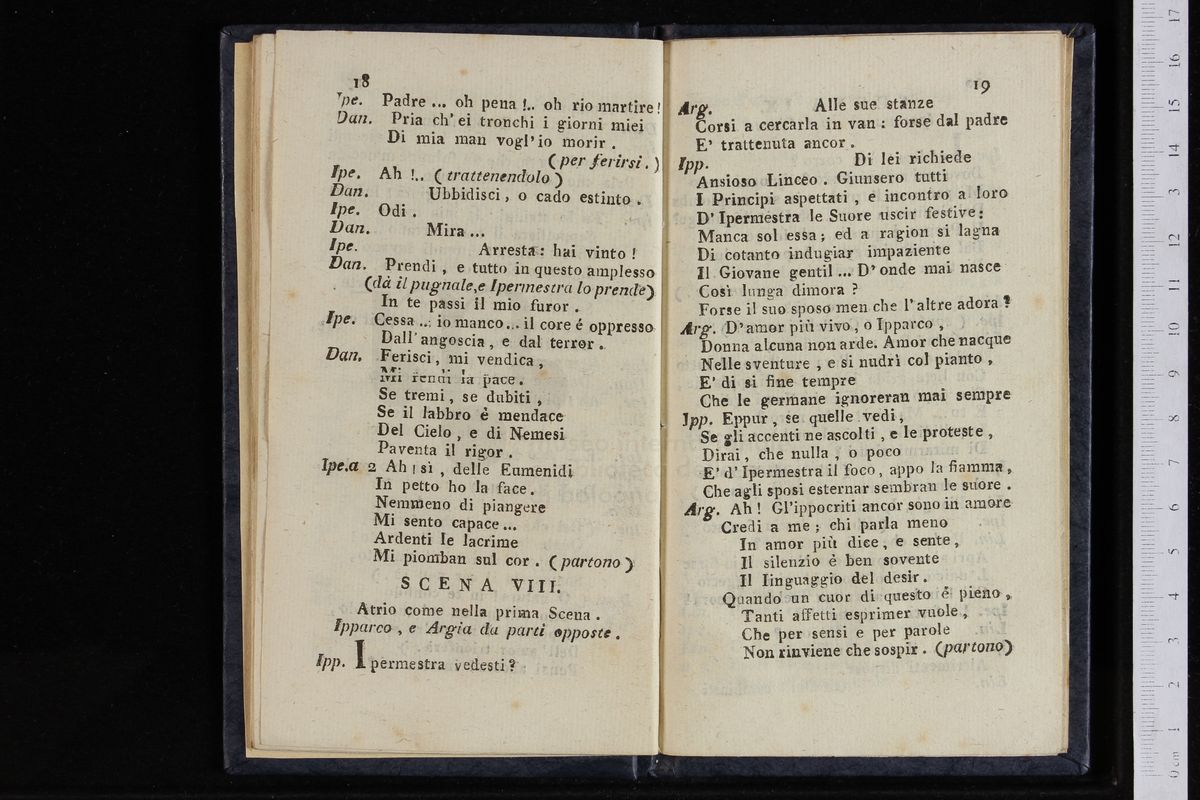 18
Ipe. Padre ... oh pena !.. oh rio martire!
Dan. Pria ch' ei tronchi i giorni miei
Di mia man vogl' io morir .
(per ferirsi.)
Ipe. Ah !.. ( trattenendolo )
Dan. Ubbidisci, o cado estinto .
Ipe. Odi .
Dan. Mira ...
Ipe. Arresta: hai vinto !
Dan. Prendi , e tutto in questo amplesso
(dà il pugnale,e Ipermestra lo prende)
In te passi il mio furor .
Ipe. Cessa ... io manco... il core é oppresso
Dall' angoscia , e dal terror .
Dan. Ferisci, mi vendica ,
Mi rendi la pace.
Se tremi , se dubiti ,
Se il labbro è mendace
Del Cielo , e di Nemesi
Paventa il rigor .
Ipe.a 2 Ah ! sì , delle Eumenidi
In petto ho la face.
Nemmeno di piangere
Mi sento capace ...
Ardenti le lacrime
Mi piomban sul cor . ( partono )
SCENA VIII.
Atrio come nella prima Scena .
Ipparco , e Argia da parti opposte .
Ipp. Ipermestra vedesti ?
19
Arg. Alle sue stanze
Corsi a cercarla in van : forse dal padre
E' trattenuta ancor .
Ipp. Di lei richiede
Ansioso Linceo . Giunsero tutti
I Principi aspettati , e incontro a loro
D' Ipermestra le Suore uscir festive:
Manca sol essa ; ed a ragion si lagna
Di cotanto indugiar impaziente
Il Giovane gentil ... D' onde mai nasce
Così lunga dimora ?
Forse il suo sposo men che l' altre adora ?
Arg. D' amor più vivo , o Ipparco ,
Donna alcuna non arde. Amor che nacque
Nelle sventure , e si nudrì col pianto ,
E' di sì fine tempre
Che le germane ignoreran mai sempre
Ipp. Eppur , se quelle vedi ,
Se gli accenti ne ascolti , e le proteste ,
Dirai , che nulla , o poco
E' d' Ipermestra il foco , appo la fiamma ,
Che agli sposi esternar sembran le suore .
Arg. Ah ! Gl'ippocriti ancor sono in amore
Credi a me ; chi parla meno
In amor più dice , e sente ,
Il silenzio è ben sovente
Il linguaggio del desir .
Quando un cuor di questo è pieno ,
Tanti affetti esprimer vuole ,
Che per sensi e per parole
Non rinviene che sospir . (partono)
0 cm 1 2 3 4 5 6 7 8 9 10 11 12 13 14 15 16 17